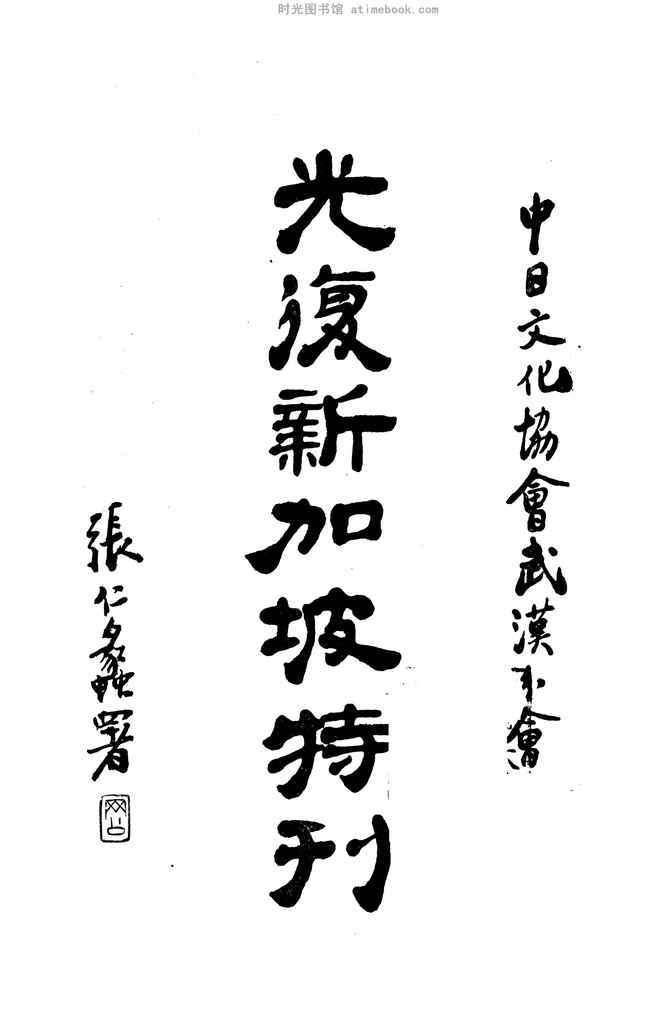 时光图书馆 atimebook.com
中日文化協會武漢分會
光復新加坡特刊
張仁蠡署